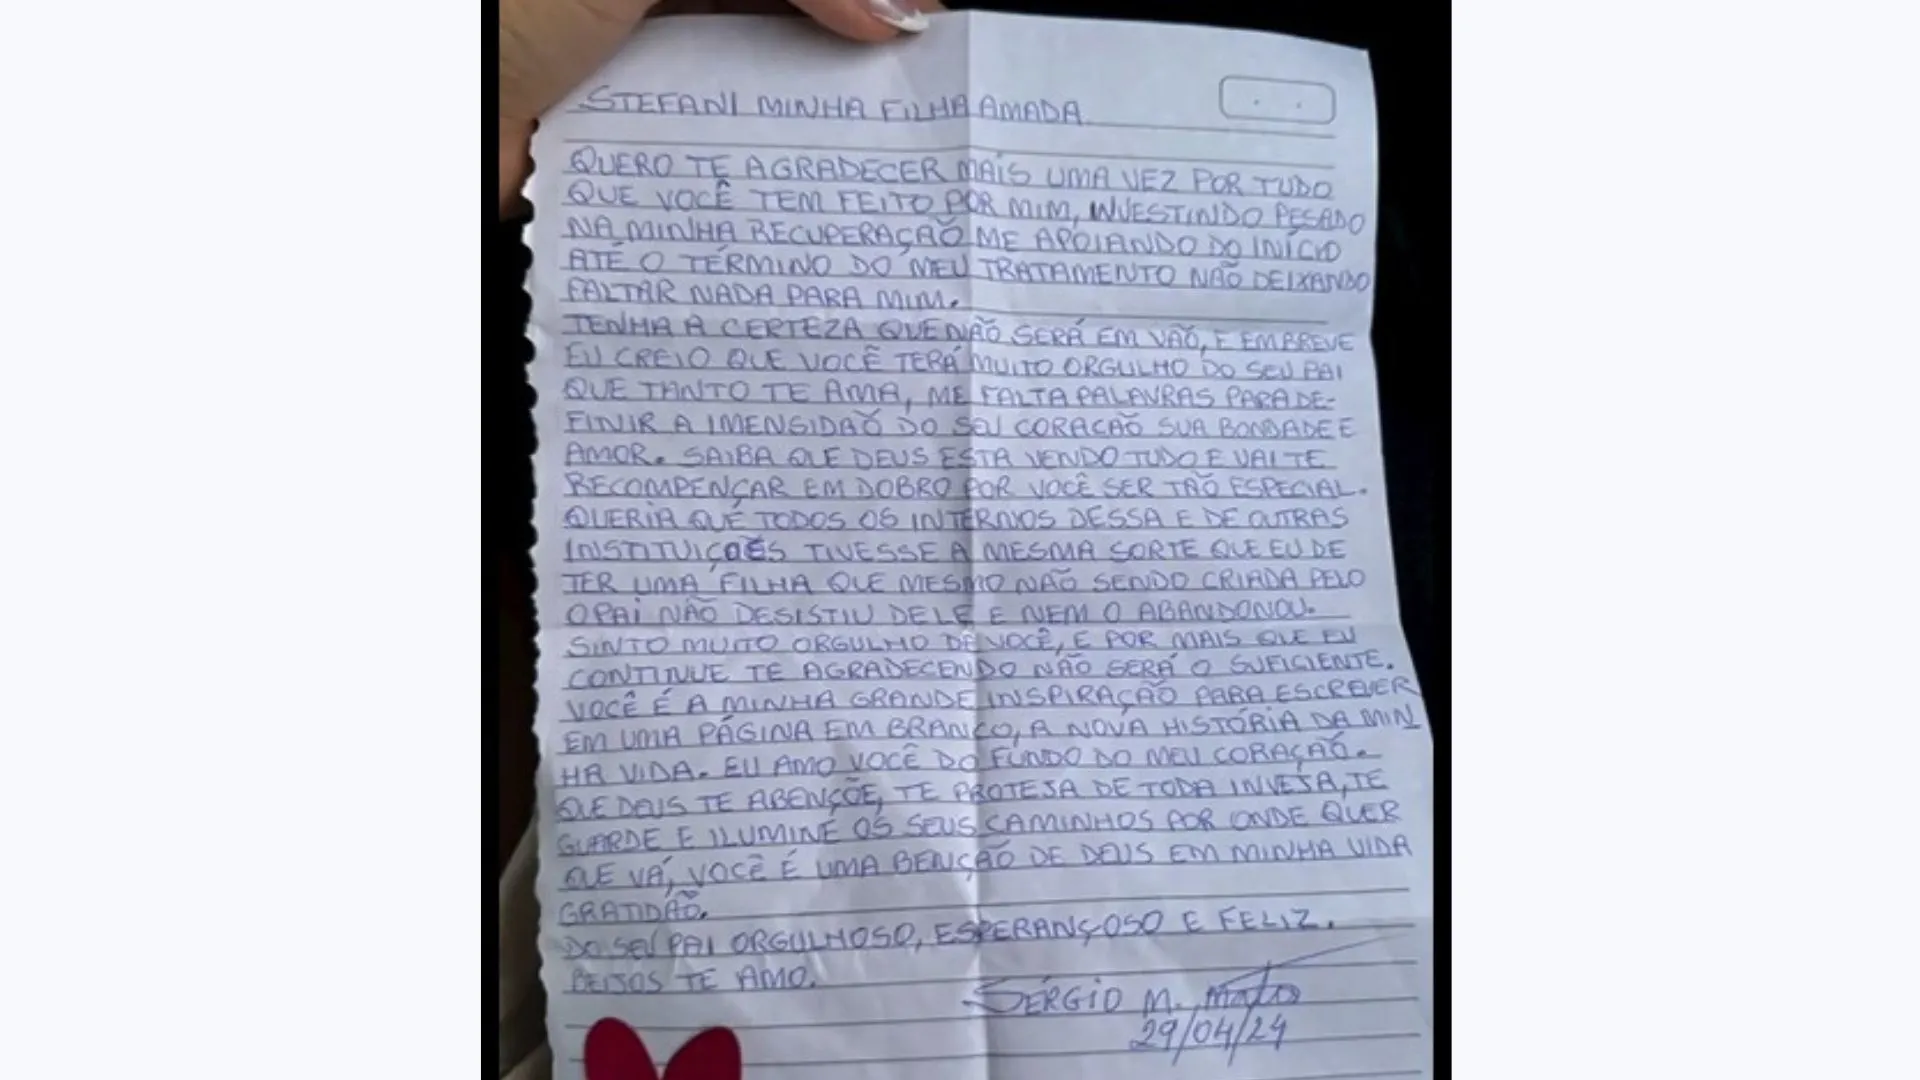 STEFANI MINHA FILHA AMADA
QUERO TE AGRADECER MAIS UMA VEZ POR TUDO
QUE VOCÊ TEM FEITO POR MIM, INVESTINDO PESADO
NA MINHA RECUPERAÇÃO ME APOIANDO DO INÍCIO
ATÉ O TÉRMINO DO MEU TRATAMENTO NÃO DEIXANDO
FALTAR NADA PARA MIM.
TENHA A CERTEZA QUE NÃO SERÁ EM VÃO, E EM BREVE
EU CREIO QUE VOCÊ TERÁ MUITO ORGULHO DO SEU PAI
QUE TANTO TE AMA, ME FALTA PALAVRAS PARA DE-
FINIR A IMENSIDAÕ DO SEU CORACAÕ SUA BONDADE E
AMOR. SAIBA QUE DEUS ESTA VENDO TUDO E VAI TE
RECOMPENÇAR EM DOBRO POR VOCÊ SER TÃO ESPECIAL.
QUERIA QUE TODOS OS INTERNOS DESSA E DE OUTRAS
INSTITUIÇOES TIVESSE A MESMA SORTE QUE EU DE
TER UMA FILHA QUE MESMO NÃO SENDO CRIADA PELO
O PAI NÃO DESISTIU DELE E NEM O ABANDONOU.
SINTO MUITO ORGULHO DE VOCÊ, E POR MAIS QUE EU
CONTINUE TE AGRADECENDO NÃO SERÁ O SUFICIENTE.
VOCÊ É A MINHA GRANDE INSPIRAÇÃO PARA ESCREVER
EM UMA PÁGINA EM BRANCO, A NOVA HISTÓRIA DA MIN
HA VIDA. EU AMO VOCÊ DO FUNDO DO MEU CORAÇAÕ.
QUE DEUS TE ABENÇÕE, TE PROTEJA DE TODA INVEJA, TE
GUARDE E ILUMINE OS SEUS CAMINHOS POR ONDE QUER
QUE VÁ, VOCÊ É UMA BENÇÃO DE DEUS EM MINHA VIDA
GRATIDÃO.
DO SEU PAI ORGULHOSO, ESPERANÇOSO E FELIZ.
BEIJOS TE AMO.
SÉRGIO M. Matos
29/04/24